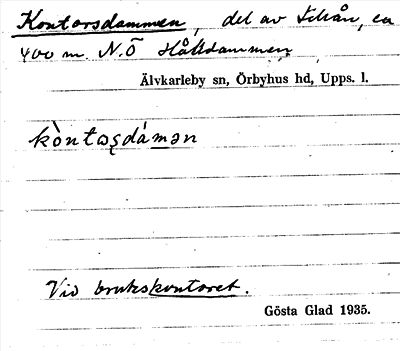 Kontorsdammen, del av Tileån, ca
400 m N.Ö Hålldammen
Älvkarleby sn, Örbyhus hd, Upps. l.
kòntoʂdámən
Vid brukskontoret.
Gösta Glad 1935.